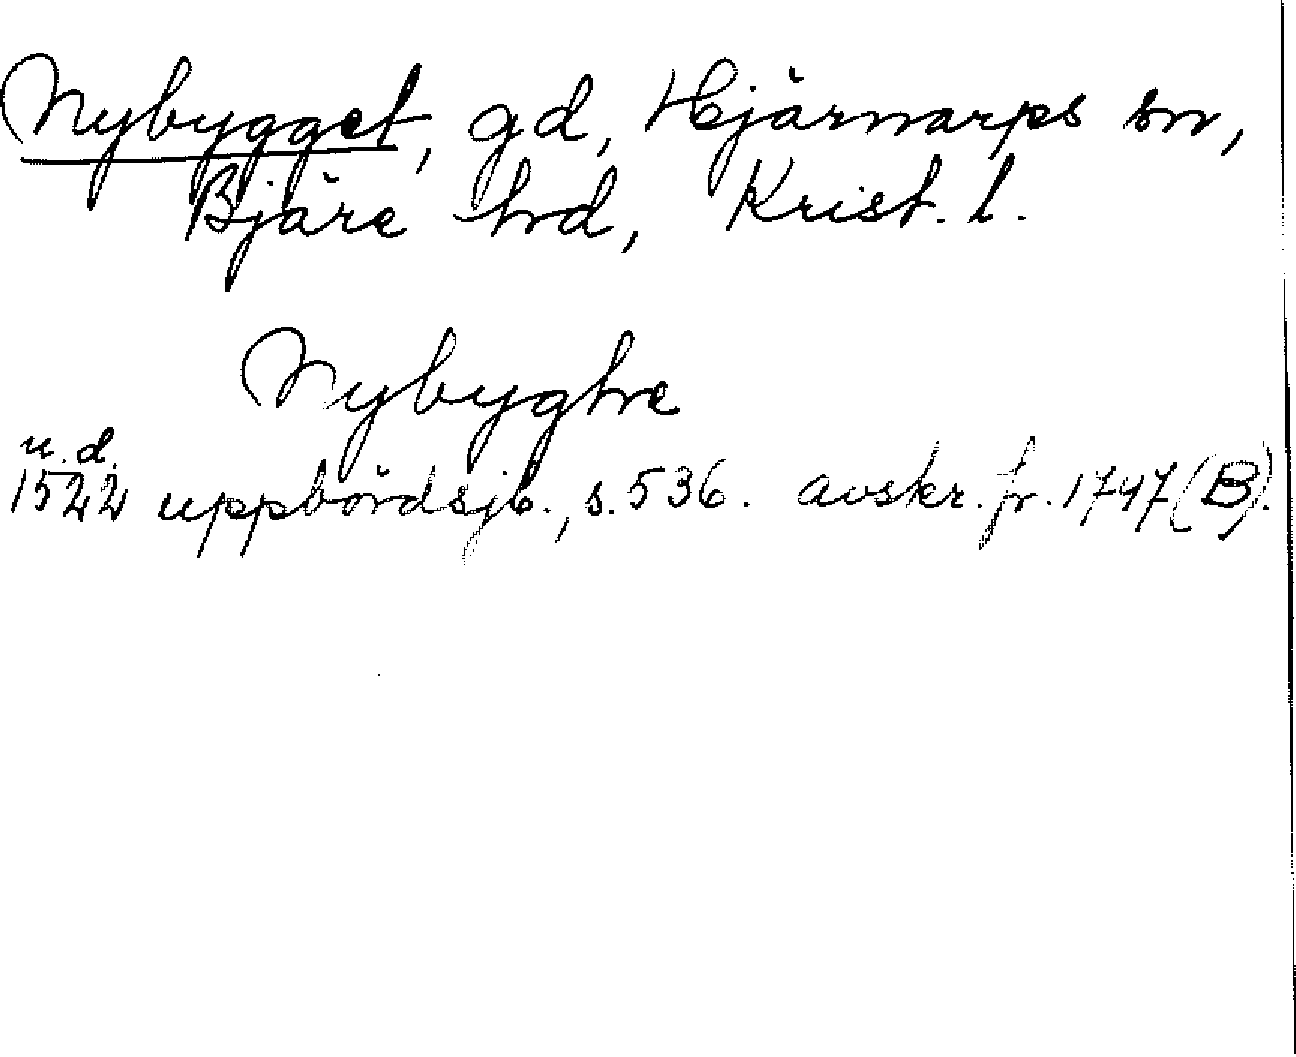 Nybygget, gd, Hjärnarps sn,
Bjäre hrd, Krist. l.
Nybygtre
u. d.
1522 uppbördsjb., s. 536. avskr. fr. 1747 (B).